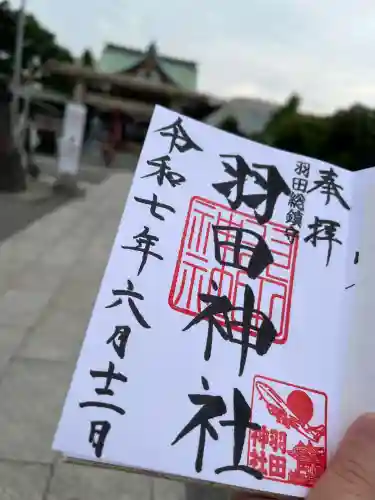 奉拝
羽田総鎮守
羽田神社
羽田
神社
令和七年六月十二日